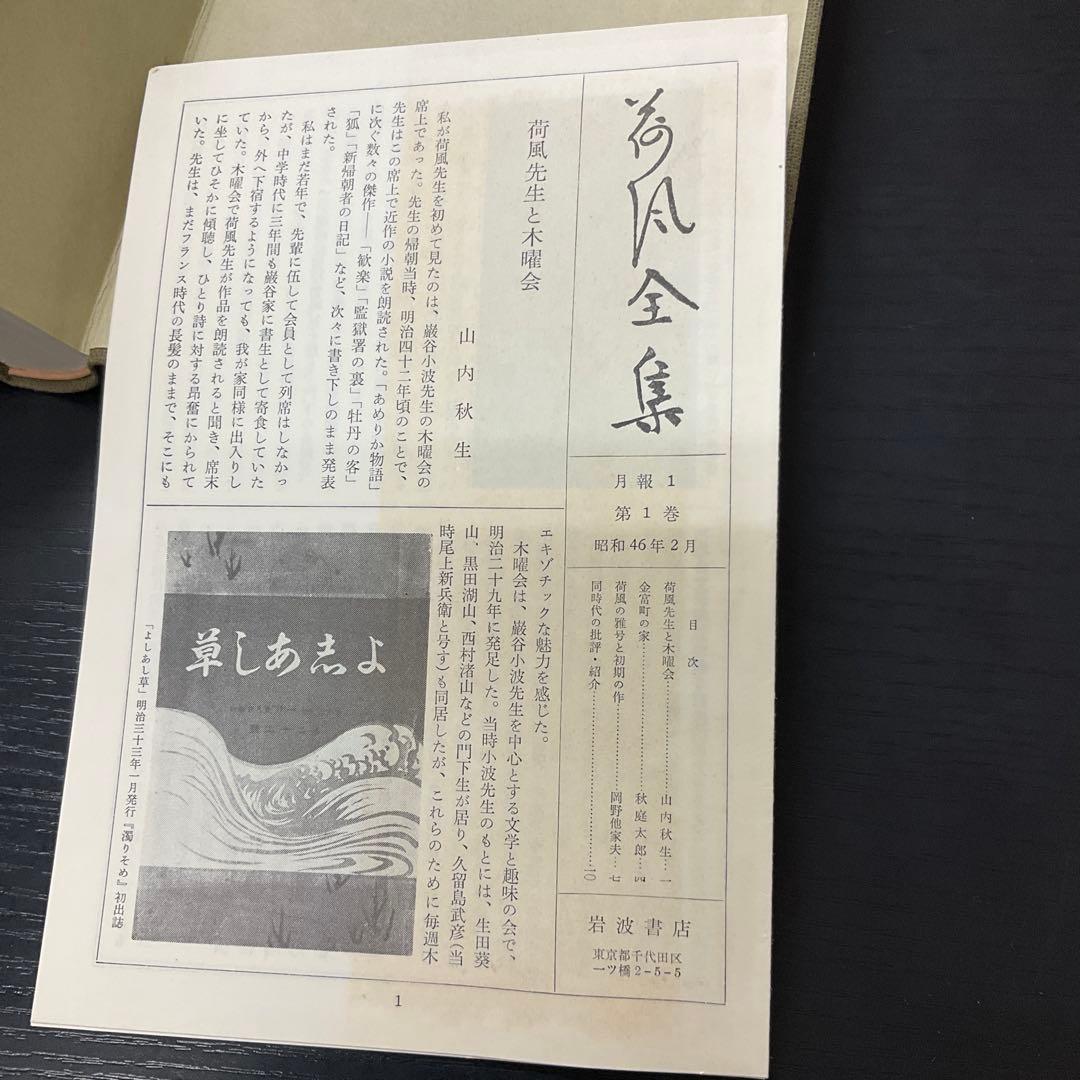 荷風全集
月報1
第1巻
昭和46年2月
目次
荷風先生と木曜会……………山内秋生…一
金富町の家……………秋庭太郎…四
荷風の雅号と初期の作……………岡野他家夫…七
同時代の批評・紹介……………一〇
岩波書店
東京都千代田区
一ツ橋2-5-5
荷風先生と木曜会
山内秋生
私が荷風先生を初めて見たのは、巌谷小波先生の木曜会の
席上であった。先生の帰朝当時、明治四十二年頃のことで、
先生はこの席上で近作の小説を朗読された。「あめりか物語」
に次ぐ数々の傑作――「歓楽」「監獄署の裏」「牡丹の客」
「狐」「新帰朝者の日記」など、次々に書き下しのまま発表
された。
私はまだ若年で、先輩に伍して会員として列席はしなかっ
たが、中学時代に三年間も巌谷家に書生として寄食していた
から、外へ下宿するようになっても、我が家同様に出入りし
ていた。木曜会で荷風先生が作品を朗読されると聞き、席末
に坐してひそかに傾聴し、ひとり詩に対する昂奮にかられて
いた。先生は、まだフランス時代の長髪のままで、そこにも
エキゾチックな魅力を感じた。
木曜会は、巌谷小波先生を中心とする文学と趣味の会で、
明治二十九年に発足した。当時小波先生のもとには、生田葵
山、黒田湖山、西村渚山などの門下生が居り、久留島武彦(当
時尾上新兵衛と号す)も同居したが、これらのために毎週木
よしあし草
「よしあし草」明治三十三年一月発行『濁りそめ』初出誌
1